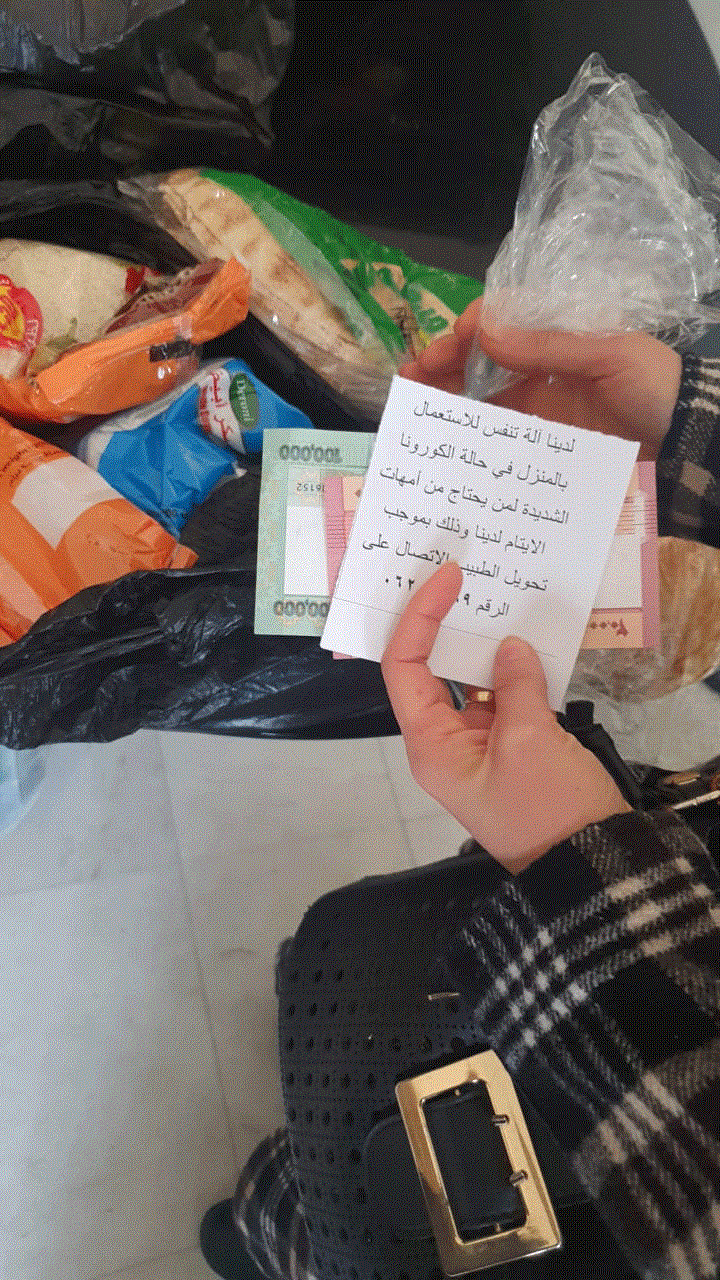 لدينا آلة تنفس للاستعمال
بالمنزل في حالة الكورونا
الشديدة لمن يحتاج من أمهات
الايتام لدينا وذلك بموجب
تحويل الطبيب الاتصال على
الرقم
100'000
16152
000
Dyouf
سكر أبيض